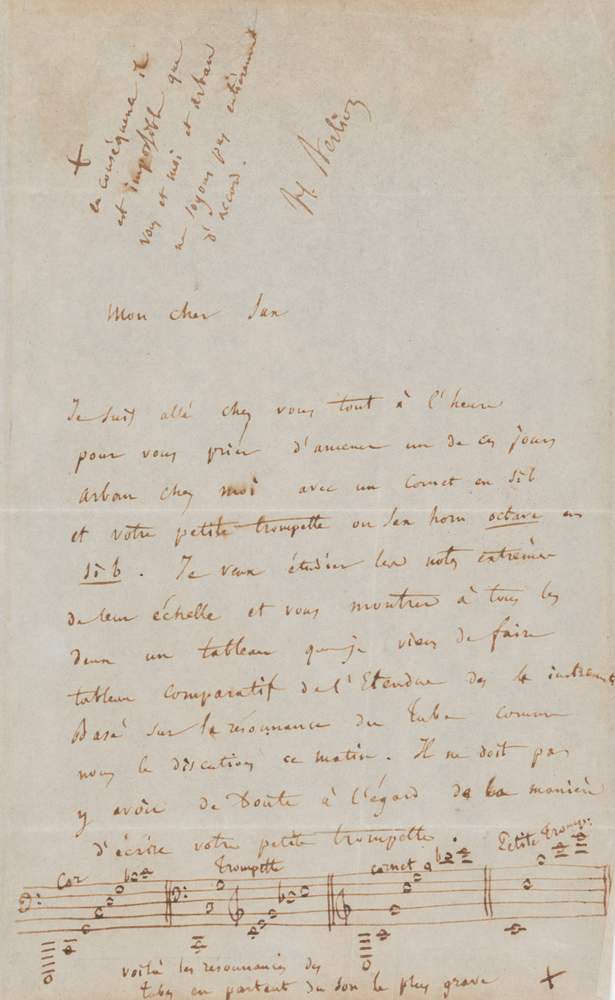 +
en conséquence il
est impossible que
vous et moi et arban
ne soyons pas entièrement
d'accord.
H. Berlioz
Mon cher Sax
Je suis allé chez vous tout à l'heure
pour vous prier d'amener un de ces jours
arban chez moi avec un Cornet en si b
et votre petite trompette ou Sax horn octave en
si b. Je veux étudier les notes extrêmes
de leur échelle et vous montrer à tous les
deux un tableau que je viens de faire
tableau comparatif de l'Etendue des 4 instrum
Basé sur la résonnance du Tube comme
nous le discutions ce matin. Il ne doit pas
y avoir de Doute à l'égard de la manière
d'écrire votre petite trompette.
Cor Trompette cornet Petite Tromp:
voilà les résonnances des
tubes en partant du son le plus grave +